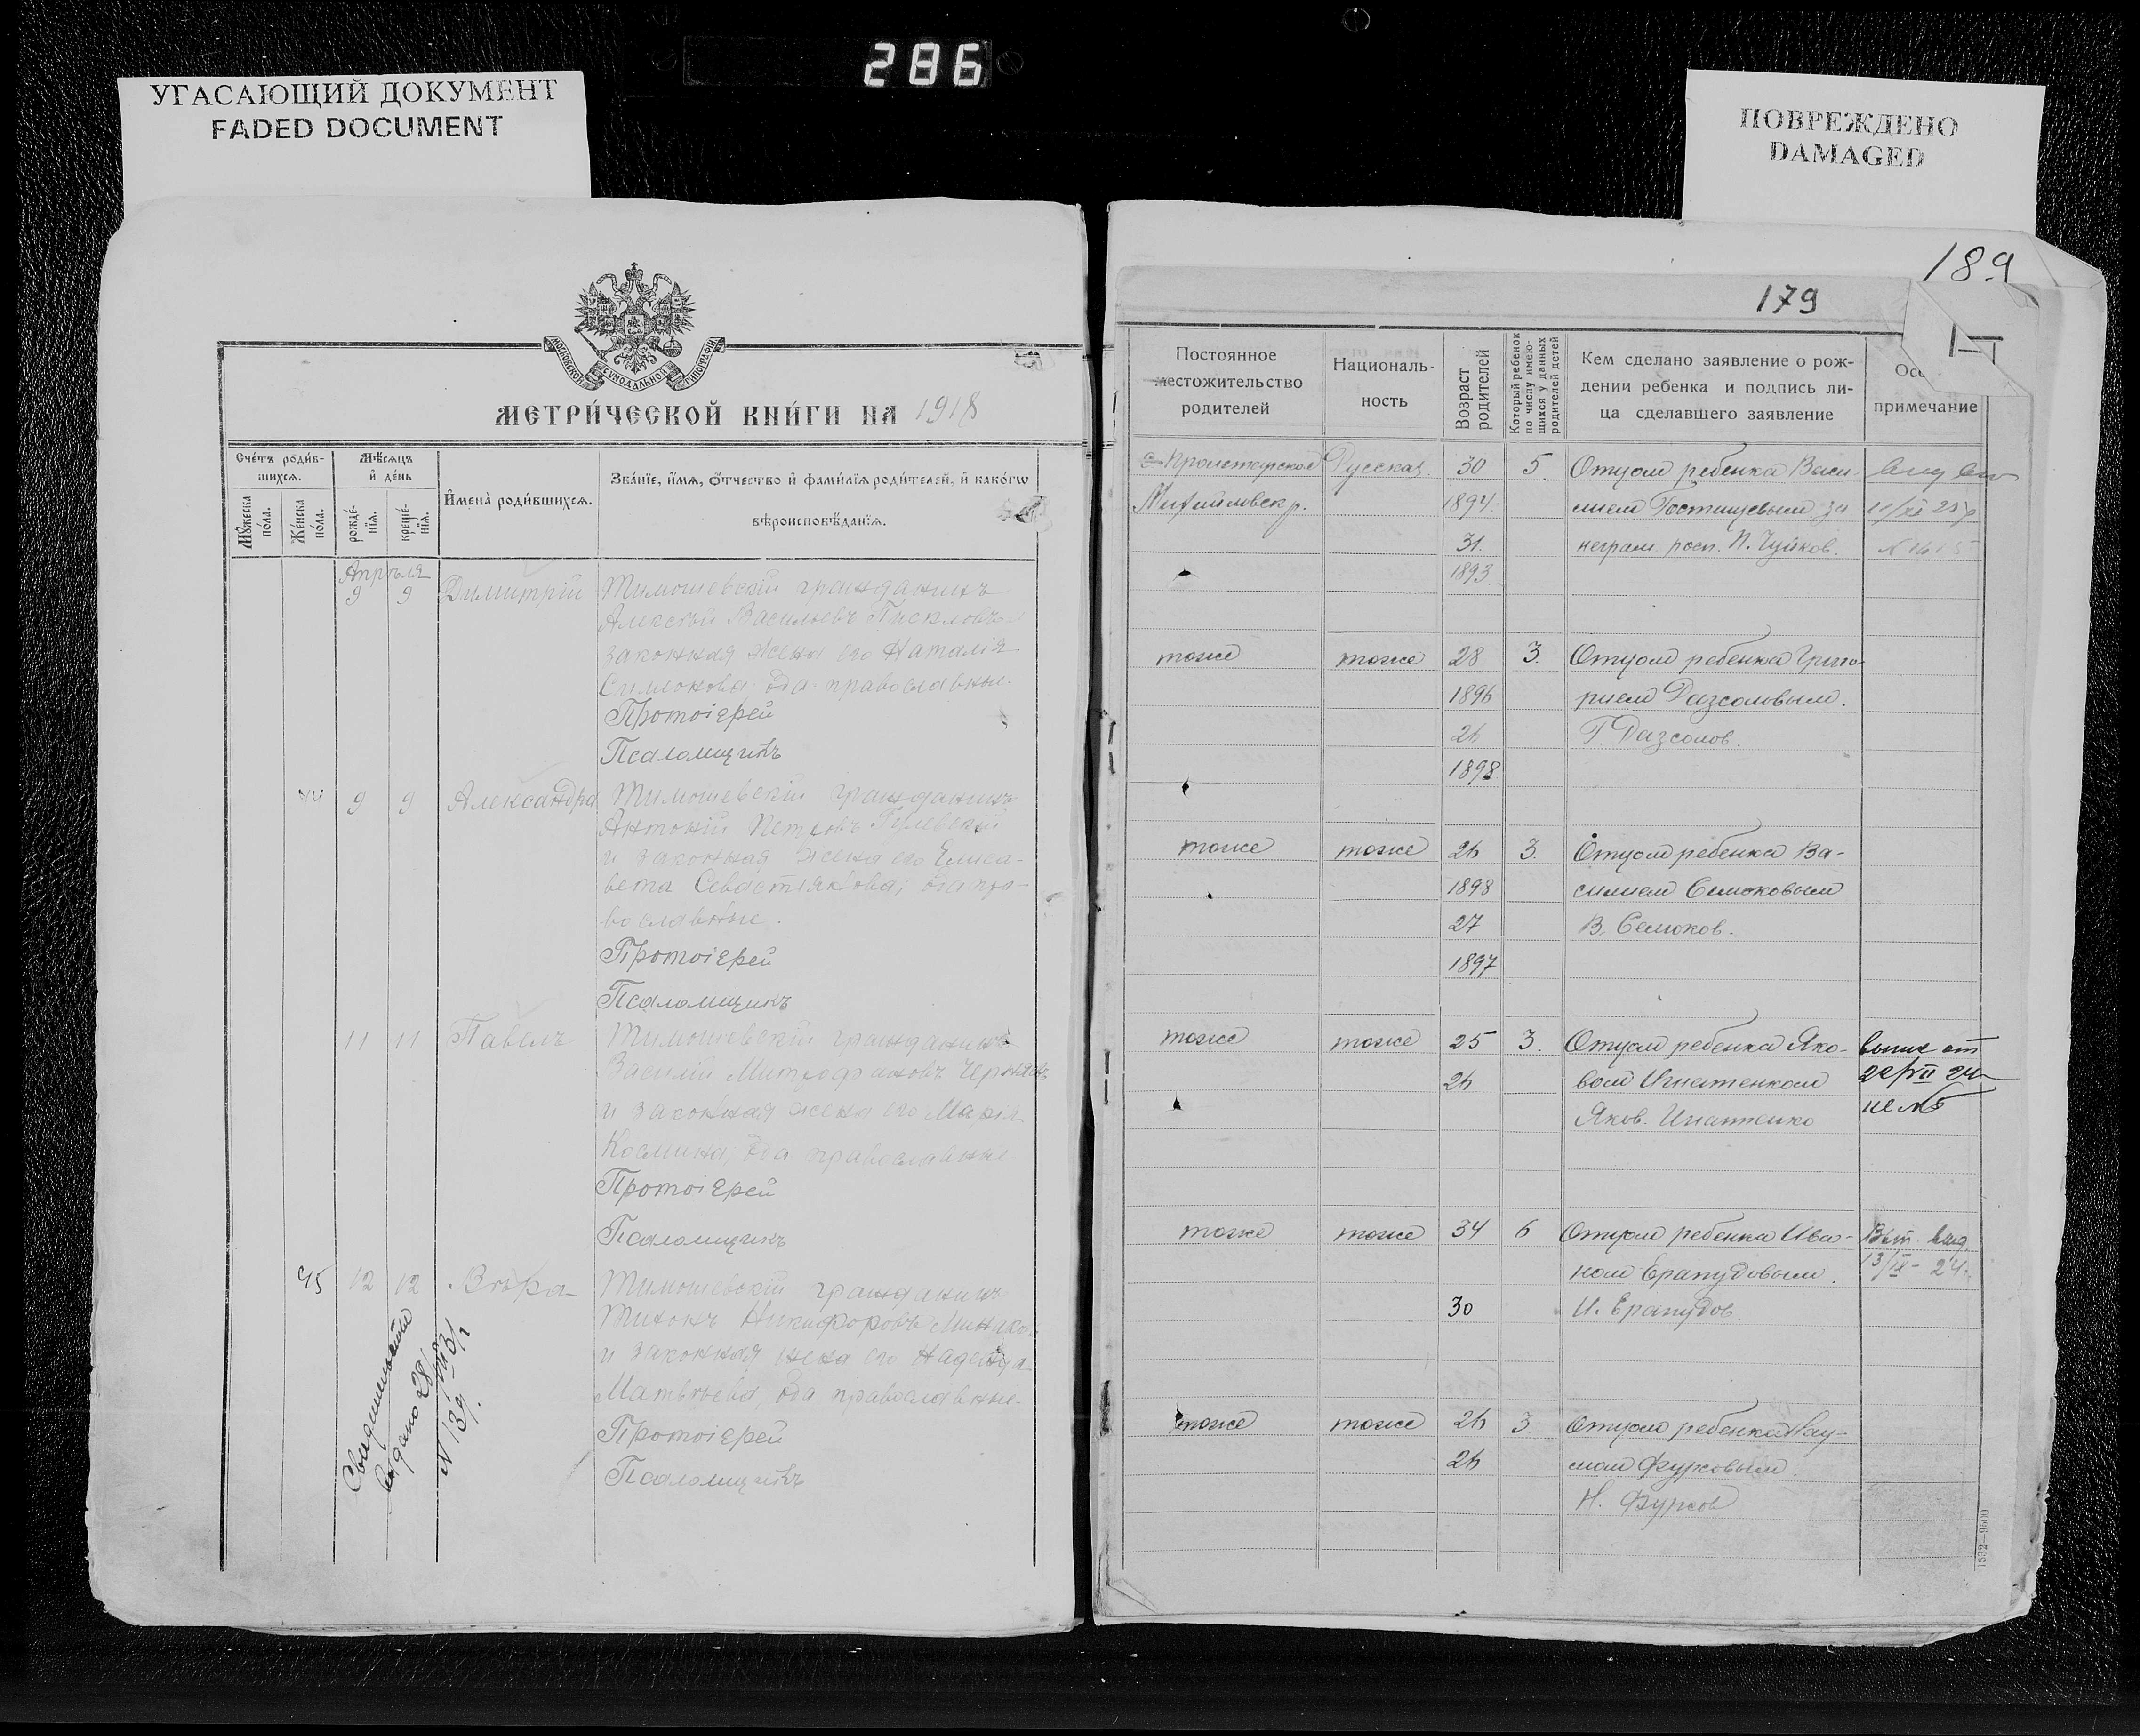 286
УГАСАЮЩИЙ ДОКУМЕНТ
FADED DOCUMENT
ПОВРЕЖДЕНО
DAMAGED
МОСКОВСКОЙ СѴНОДАЛЬНОЙ ТИПОГРАФІИ
МЕТРИ́ЧЕСКОЙ КНИ́ГИ НА 1918
Сче́тъ роди́в-
шихся.
Мѣ́сяцъ
и҆ де́нь
Мꙋ́жеска
по́ла.
Же́нска
по́ла.
рожде́-
нїѧ.
креще́-
нїѧ.
И҆мена̀ роди́вшихся.
Зва́нїе, и҆́мѧ, ѻ҆́тчество и҆ фами́лїѧ роди́телей, и҆ како́гѡ
вѣроисповѣ́данїѧ.
Апрѣля
9 9 Димитрій Тимошевскій гражданинъ
Алексѣй Васильевъ
законная жена его Наталія
Симонова оба православные.
Протоіерей
Псаломщикъ
44 9 9 Александра Тимошевскій гражданинъ
Антоній Петровъ
и законная жена его Елиса-
вета Севастіянова; оба пра-
вославные.
Протоіерей
Псаломщикъ
11 11 Павелъ Тимошевскій гражданинъ
Василій Митрофановъ
и законная жена его Марія
Космина; оба православные
Протоіерей
Псаломщикъ
45 12 12 Вѣра Тимошевскій гражданинъ
Тихонъ Никифоровъ
и законная жена его Надежда
Матвѣева оба православные.
Протоіерей
Псаломщикъ
Свидетельство
выдано 28/VIII 31 г
N 139.
189
179
Постоянное
местожительство
родителей
Националь-
ность
Возраст
родителей
Который ребенок
по числу имею-
щихся у данных
родителей детей
Кем сделано заявление о рож-
дении ребенка и подпись ли-
ца сделавшего заявление
примечание
с. Пролетарское Русская. 30 5. Отцом ребенка Васи-
Михайловск р. 1894. лием Гостищевым за
31. неграм. росп. П. Чуйков.
1893.
тоже тоже 28 3. Отцом ребенка Григо-
1896 рием
26 Г.
1898
тоже тоже 26 3. Отцом ребенка Ва-
1898 силием Семоковым
27 В. Семоков.
1897
тоже тоже 25 3. Отцом ребенка Яко-
26 вом Игнатенком
Яков. Игнатенко
тоже тоже 34 6 Отцом ребенка Ива-
ном
30 И.
13/IX - 24
тоже тоже 26 3 Отцом ребенка Нау-
26 мом Фурсовым.
Н. Фурсов
1532—9600